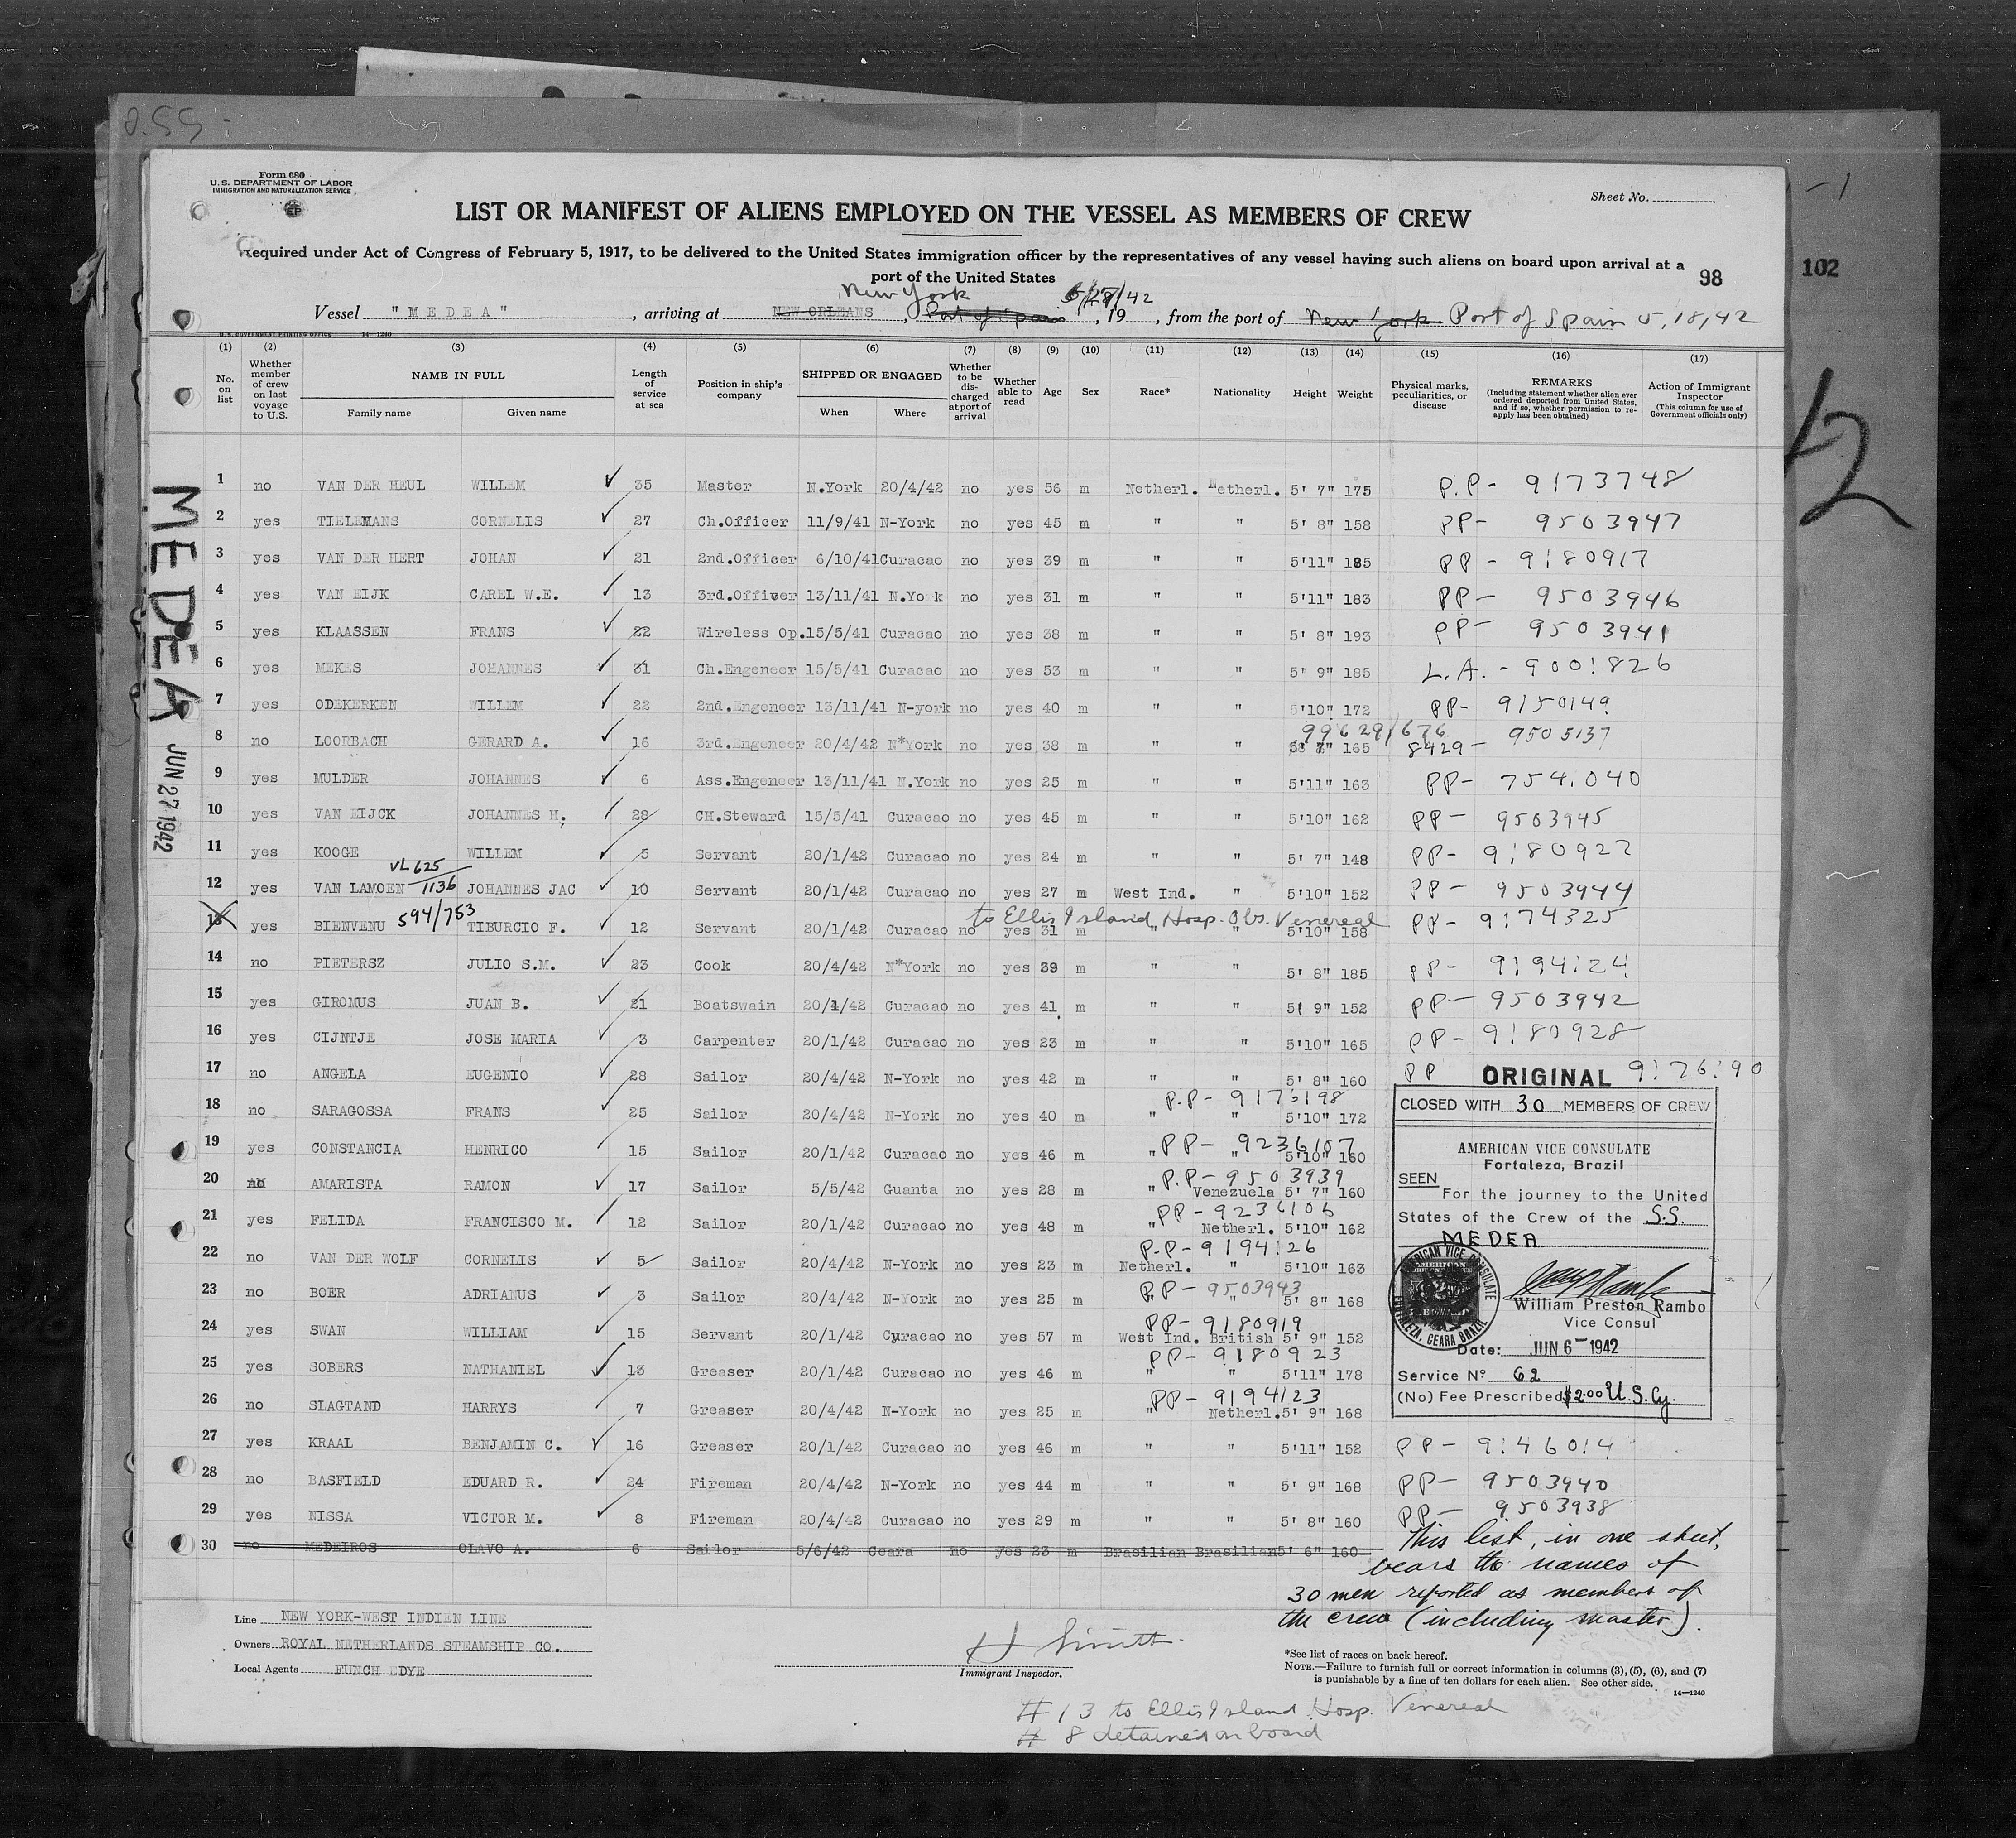 O.SS-
Form 680
U.S. DEPARTMENT OF LABOR
IMMIGRATION AND NATURALIZATION SERVICE
Sheet No.
-1
LIST OR MANIFEST OF ALIENS EMPLOYED ON THE VESSEL AS MEMBERS OF CREW
Required under Act of Congress of February 5, 1917, to be delivered to the United States immigration officer by the representatives of any vessel having such aliens on board upon arrival at a
port of the United States
98
102
New York 6/27/42
Vessel "MEDEA", arriving at NEW ORLEANS, Port of Spain, 19, from the port of New York Port of Spain 5,18,42
U.S. GOVERNMENT PRINTING OFFICE 14-1240
(1) (2) (3) (4) (5) (6) (7) (8) (9) (10) (11) (12) (13) (14) (15) (16) (17)
No. on list
Whether member of crew on last voyage to U.S.
NAME IN FULL
Family name Given name
Length of service at sea
Position in ship's company
SHIPPED OR ENGAGED
When Where
Whether to be discharged at port of arrival
Whether able to read
Age Sex Race* Nationality Height Weight
Physical marks, peculiarities, or disease
REMARKS
(Including statement whether alien ever ordered deported from United States, and if so, whether permission to re-apply has been obtained)
Action of Immigrant Inspector
(This column for use of Government officials only)
12
MEDEA JUN 27 1942
1 no VAN DER HEUL WILLEM 35 Master N.York 20/4/42 no yes 56 m Netherl. Netherl. 5' 7" 175 P.P- 9173748
2 yes TIELEMANS CORNELIS 27 Ch.Officer 11/9/41 N-York no yes 45 m " " 5' 8" 158 PP- 9503947
3 yes VAN DER HERT JOHAN 21 2nd.Officer 6/10/41 Curacao no yes 39 m " " 5'11" 185 PP- 9180917
4 yes VAN EIJK CAREL W.E. 13 3rd.Officer 13/11/41 N.York no yes 31 m " " 5'11" 183 PP- 9503946
5 yes KLAASSEN FRANS 22 Wireless Op. 15/5/41 Curacao no yes 38 m " " 5' 8" 193 PP- 9503941
6 yes MEKES JOHANNES 31 Ch.Engeneer 15/5/41 Curacao no yes 53 m " " 5' 9" 185 L.A.- 9001826
7 yes ODEKERKEN WILLEM 22 2nd.Engeneer 13/11/41 N-york no yes 40 m " " 5'10" 172 PP- 9150149
99629/676
8 no LOORBACH GERARD A. 16 3rd.Engeneer 20/4/42 N*York no yes 38 m " " 165 8429- 9505137
9 yes MULDER JOHANNES 6 Ass.Engeneer 13/11/41 N.York no yes 25 m " " 5'11" 163 PP- 754.040
10 yes VAN EIJCK JOHANNES H. 28 CH.Steward 15/5/41 Curacao no yes 45 m " " 5'10" 162 PP- 9503945
11 yes KOOGE WILLEM 5 Servant 20/1/42 Curacao no yes 24 m " " 5' 7" 148 PP- 9180922
VL625/1136
12 yes VAN LAMOEN JOHANNES JAC 10 Servant 20/1/42 Curacao no yes 27 m West Ind. " 5'10" 152 PP- 9503944
594/753 to Ellis Island Hosp. Obs. Venereal
13 yes BIENVENU TIBURCIO F. 12 Servant 20/1/42 Curacao no yes 31 m " " 5'10" 158 PP- 9174325
14 no PIETERSZ JULIO S.M. 23 Cook 20/4/42 N*York no yes 39 m " " 5' 8" 185 PP- 9194124
15 yes GIROMUS JUAN B. 21 Boatswain 20/1/42 Curacao no yes 41 m " " 5' 9" 152 PP- 9503942
16 yes CIJNTJE JOSE MARIA 3 Carpenter 20/1/42 Curacao no yes 23 m " " 5'10" 165 PP- 9180928
17 no ANGELA EUGENIO 28 Sailor 20/4/42 N-York no yes 42 m " " 5' 8" 160 PP 9176190
18 no SARAGOSSA FRANS 25 Sailor 20/4/42 N-York no yes 40 m " " 5'10" 172 P.P- 9173198
19 yes CONSTANCIA HENRICO 15 Sailor 20/1/42 Curacao no yes 46 m " " 5'10" 160 PP- 9236107
20 no AMARISTA RAMON 17 Sailor 5/5/42 Guanta no yes 28 m " Venezuela 5' 7" 160 P.P- 9503939
21 yes FELIDA FRANCISCO M. 12 Sailor 20/1/42 Curacao no yes 48 m " Netherl. 5'10" 162 PP- 9236106
22 no VAN DER WOLF CORNELIS 5 Sailor 20/4/42 N-York no yes 23 m Netherl. " 5'10" 163 P.P- 9194126
23 no BOER ADRIANUS 3 Sailor 20/4/42 N-York no yes 25 m " " 5' 8" 168 PP- 9503943
24 yes SWAN WILLIAM 15 Servant 20/1/42 Curacao no yes 57 m West Ind. British 5' 9" 152 PP- 9180919
25 yes SOBERS NATHANIEL 13 Greaser 20/1/42 Curacao no yes 46 m " " 5'11" 178 PP- 9180923
26 no SLAGTAND HARRYS 7 Greaser 20/4/42 N-York no yes 25 m " Netherl. 5' 9" 168 PP- 9194123
27 yes KRAAL BENJAMIN C. 16 Greaser 20/1/42 Curacao no yes 46 m " " 5'11" 152 PP- 9146014
28 no BASFIELD EDUARD R. 24 Fireman 20/4/42 N-York no yes 44 m " " 5' 9" 168 PP- 9503940
29 yes NISSA VICTOR M. 8 Fireman 20/4/42 Curacao no yes 29 m " " 5' 8" 160 PP- 9503938
30 no MEDEIROS OLAVO A. 6 Sailor 5/6/42 Ceara no yes 23 m Brasilian Brasilian 5' 6" 160
ORIGINAL
CLOSED WITH 30 MEMBERS OF CREW
AMERICAN VICE CONSULATE
Fortaleza, Brazil
SEEN
For the journey to the United
States of the Crew of the S.S.
MEDEA
AMERICAN VICE CONSULATE
FORTALEZA, CEARA BRAZIL
William Preston Rambo
Vice Consul
Date: JUN 6-1942
Service No 62
(No) Fee Prescribed $2.00 U.S.Cy.
This list, in one sheet,
bears the names of
30 men reported as members of
the crew (including master).
Line NEW YORK-WEST INDIEN LINE
Owners ROYAL NETHERLANDS STEAMSHIP CO.
Local Agents FUNCH EDYE
Immigrant Inspector.
*See list of races on back hereof.
NOTE.—Failure to furnish full or correct information in columns (3), (5), (6), and (7)
is punishable by a fine of ten dollars for each alien. See other side.
14-1240
# 13 to Ellis Island Hosp. Venereal
# 8 detained on board